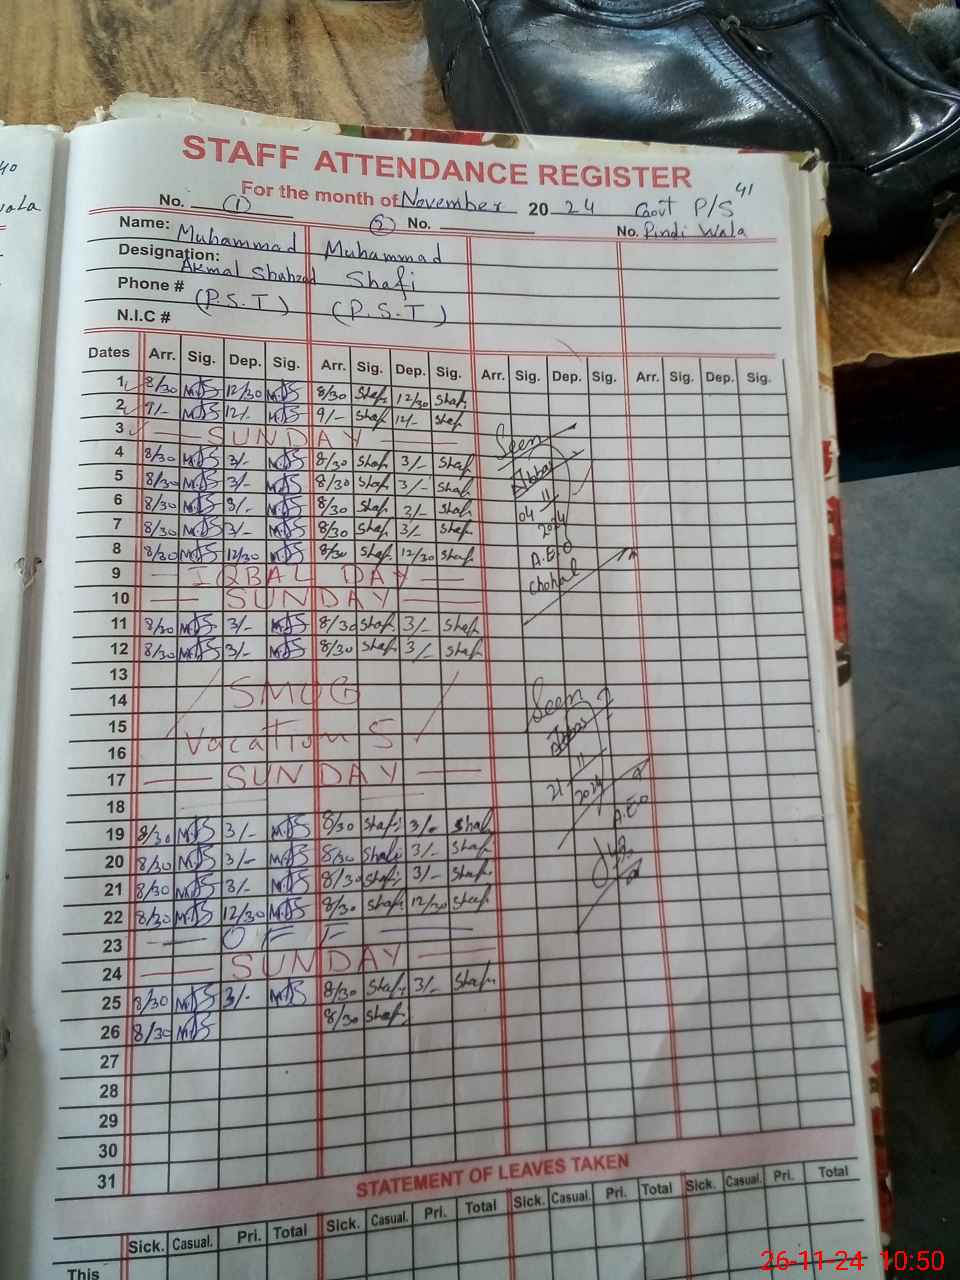 STAFF ATTENDANCE REGISTER
For the month of November 2024 Govt P/S 41
No. 1 2 No. No. Pindi Wala
Name: Muhammad Muhammad
Designation: Akmal Shahzad Shafi
Phone # (P.S.T) (P.S.T)
N.I.C #
Dates Arr. Sig. Dep. Sig. Arr. Sig. Dep. Sig. Arr. Sig. Dep. Sig. Arr. Sig. Dep. Sig.
1 8/30 MAS 12/30 MAS 8/30 Shafi 12/30 Shafi
2 9/- MAS 12/- MAS 9/- Shafi 12/- Shafi
3 SUNDAY
4 8/30 MAS 3/- MAS 8/30 Shafi 3/- Shafi
5 8/30 MAS 3/- MAS 8/30 Shafi 3/- Shafi
6 8/30 MAS 3/- MAS 8/30 Shafi 3/- Shafi
7 8/30 MAS 3/- MAS 8/30 Shafi 3/- Shafi
8 8/30 MAS 12/30 MAS 8/30 Shafi 12/30 Shafi
9 IQBAL DAY
10 SUNDAY
11 8/30 MAS 3/- MAS 8/30 Shafi 3/- Shafi
12 8/30 MAS 3/- MAS 8/30 Shafi 3/- Shafi
13
14 SMOG
15 Vacations
16
17 SUNDAY
18
19 8/30 MAS 3/- MAS 8/30 Shafi 3/- Shafi
20 8/30 MAS 3/- MAS 8/30 Shafi 3/- Shafi
21 8/30 MAS 3/- MAS 8/30 Shafi 3/- Shafi
22 8/30 MAS 12/30 MAS 8/30 Shafi 12/30 Shafi
23 OFF
24 SUNDAY
25 8/30 MAS 3/- MAS 8/30 Shafi 3/- Shafi
26 8/30 MAS 8/30 Shafi
27
28
29
30
31
Seen
04 11
2024
A.E.O
Chohal
Seen
21 11
2024
A.E.O
STATEMENT OF LEAVES TAKEN
Sick. Casual. Pri. Total Sick. Casual. Pri. Total Sick. Casual. Pri. Total Sick. Casual. Pri. Total
This
26-11-24 10:50